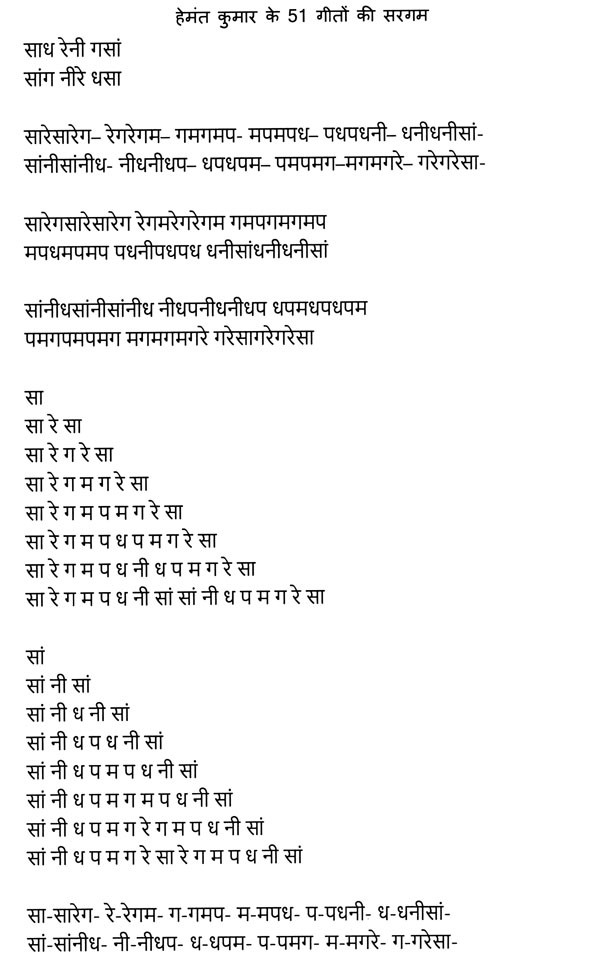 हेमंत कुमार के 51 गीतों की सरगम
साध रेनी गसां
सांग नीरे धसा
सारेसारेग– रेगरेगम– गमगमप- मपमपध– पधपधनी– धनीधनीसां-
सांनीसांनीध- नीधनीधप– धपधपम– पमपमग–मगमगरे– गरेगरेसा-
सारेगसारेसारेग रेगमरेगरेगम गमपगमगमप
मपधमपमप पधनीपधपध धनीसांधनीधनीसां
सांनीधसांनीसांनीध नीधपनीधनीधप धपमधपधपम
पमगपमपमग मगमगमगरे गरेसागरेगरेसा
सा
सा रे सा
सा रे ग रे सा
सा रे ग म ग रे सा
सा रे ग म प म ग रे सा
सा रे ग म प ध प म ग रे सा
सा रे ग म प ध नी ध प म ग रे सा
सा रे ग म प ध नी सां सां नी ध प म ग रे सा
सां
सां नी सां
सां नी ध नी सां
सां नी ध प ध नी सां
सां नी ध प म प ध नी सां
सां नी ध प म ग म प ध नी सां
सां नी ध प म ग रे ग म प ध नी सां
सां नी ध प म ग रे सा रे ग म प ध नी सां
सा-सारेग- रे-रेगम- ग-गमप- म-मपध- प-पधनी- ध-धनीसां-
सां-सांनीध- नी-नीधप- ध-धपम- प-पमग- म-मगरे- ग-गरेसा-